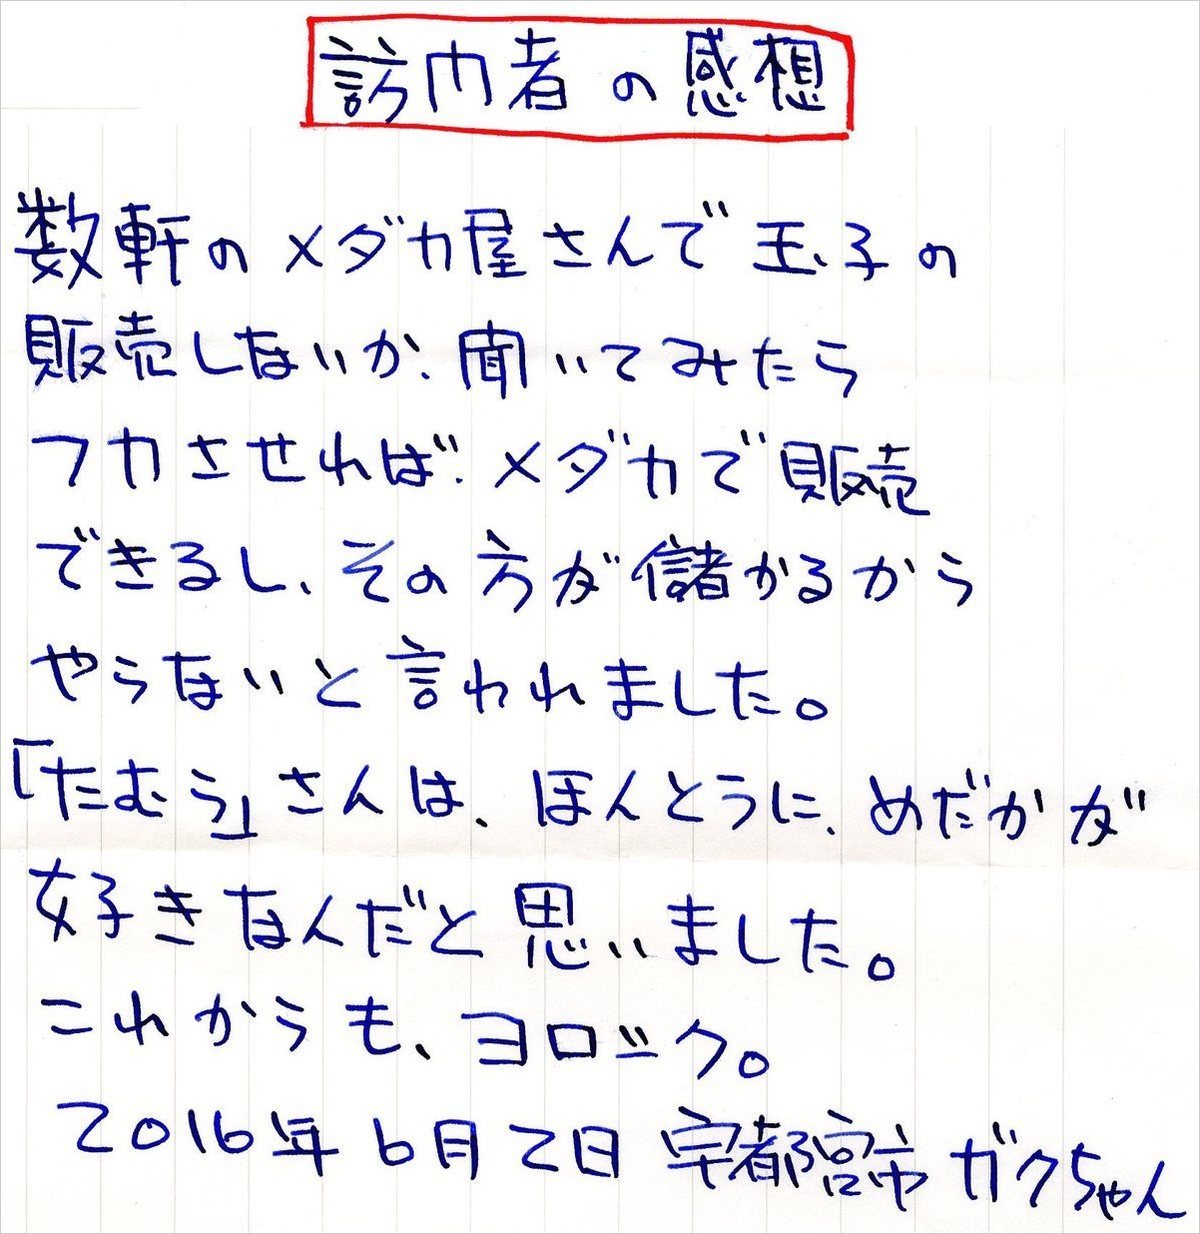 訪門者の感想
数軒のメダカ屋さんで玉子の
販売しないか、聞いてみたら
フカさせれば、メダカで販売
できるし、その方が儲かるから
やらないと言われました。
「たむら」さんは、ほんとうに、めだかが
好きなんだと思いました。
これからも、ヨロシク。
2016年6月2日 宇都宮市 ガクちゃん